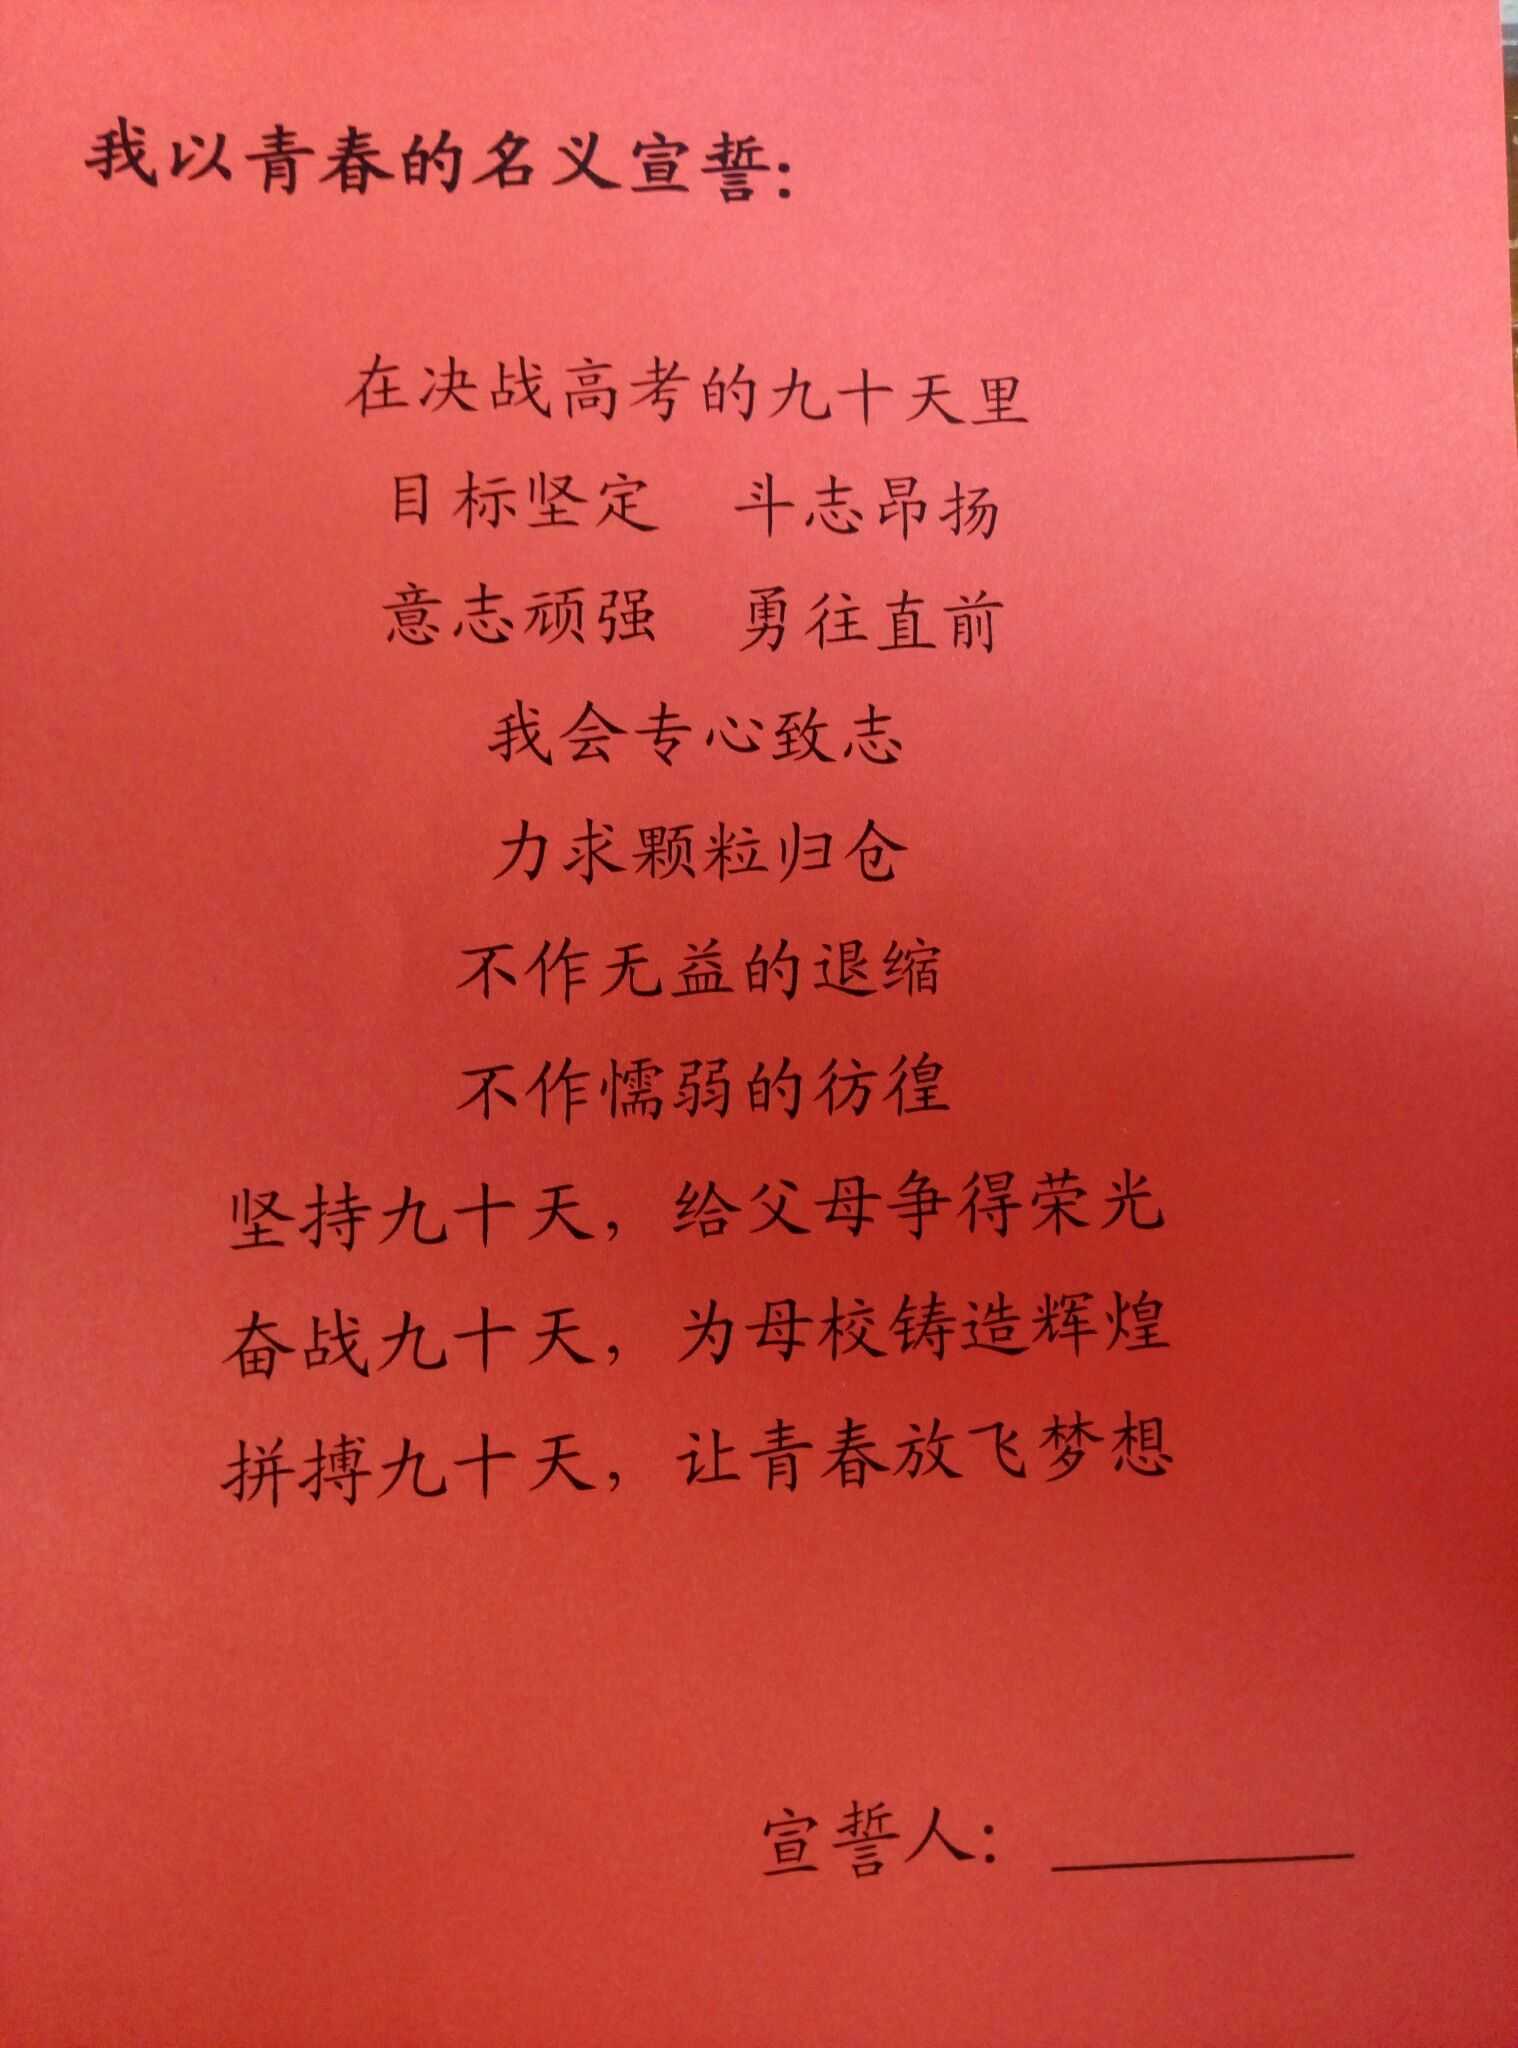 我以青春的名义宣誓：
在决战高考的九十天里
目标坚定　斗志昂扬
意志顽强　勇往直前
我会专心致志
力求颗粒归仓
不作无益的退缩
不作懦弱的彷徨
坚持九十天，给父母争得荣光
奋战九十天，为母校铸造辉煌
拼搏九十天，让青春放飞梦想
宣誓人：